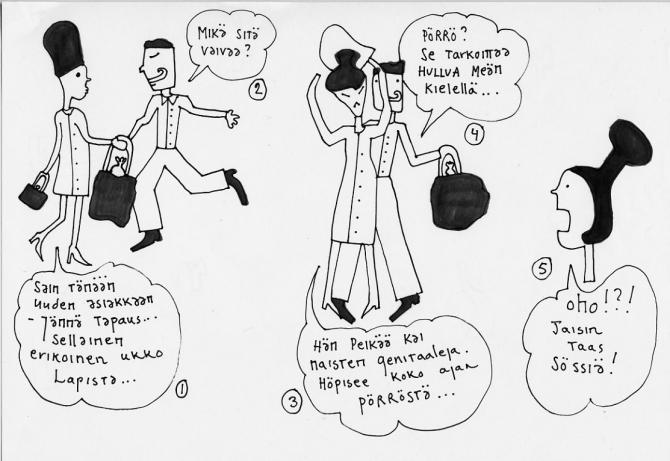 Sain tänään
uuden asiakkaan
- Jännä tapaus...
Sellainen
erikoinen ukko
Lapista...
1
Mikä sitä
vaivaa?
2
Hän pelkää kai
naisten genitaaleja.
Höpisee koko ajan
pörröstä...
3
Pörrö?
Se tarkoittaa
hullua meän
kielellä...
4
5
oho!?!
Taisin
taas
sössiä!